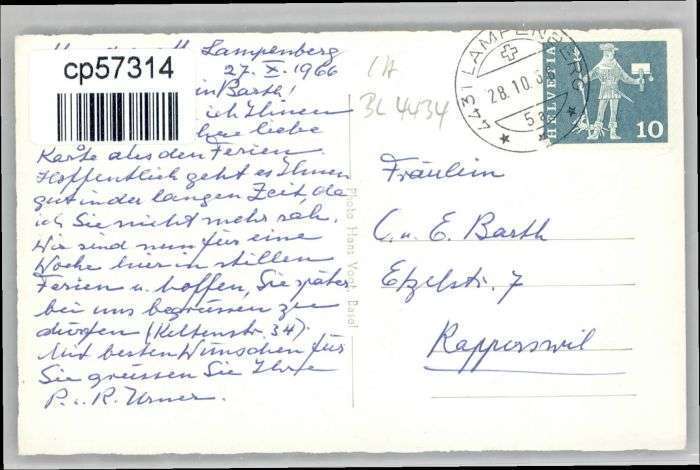 Lampenberg
cp57314
27. X. 1966
in Barth!
ich Ihnen
liebe
Karte aus den Ferien.
Hoffentlich geht es Ihnen
gut in der langen Zeit, da
ich Sie nicht mehr sah.
Wir sind nun für eine
Woche hier in stillen
Ferien u. hoffen, Sie später
bei uns begrüssen zu
dürfen (Keltenstr. 34).
Mit besten Wünschen für
Sie grüssen Sie Ihre
P. u. R. Urner.
Photo Hans Vogt Basel
BL 4434
4431 LAMPENBERG
28.10.
5a
HELVETIA
10
Fräulein
C. u. E. Barth
Etzelstr. 7
Rapperswil